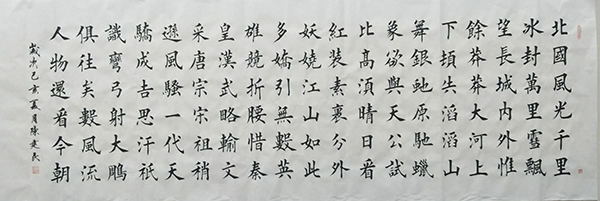 北國風光千里
冰封萬里雪飄
望長城內外惟
餘莽莽大河上
下頓失滔滔山
舞銀虵原馳蠟
象欲與天公試
比高須晴日看
紅裝素裹分外
妖嬈江山如此
多嬌引無數英
雄競折腰惜秦
皇漢武略輸文
采唐宗宋祖稍
遜風騷一代天
驕成吉思汗祇
識彎弓射大鵰
俱往矣數風流
人物還看今朝
歲次己亥夏月陳建民